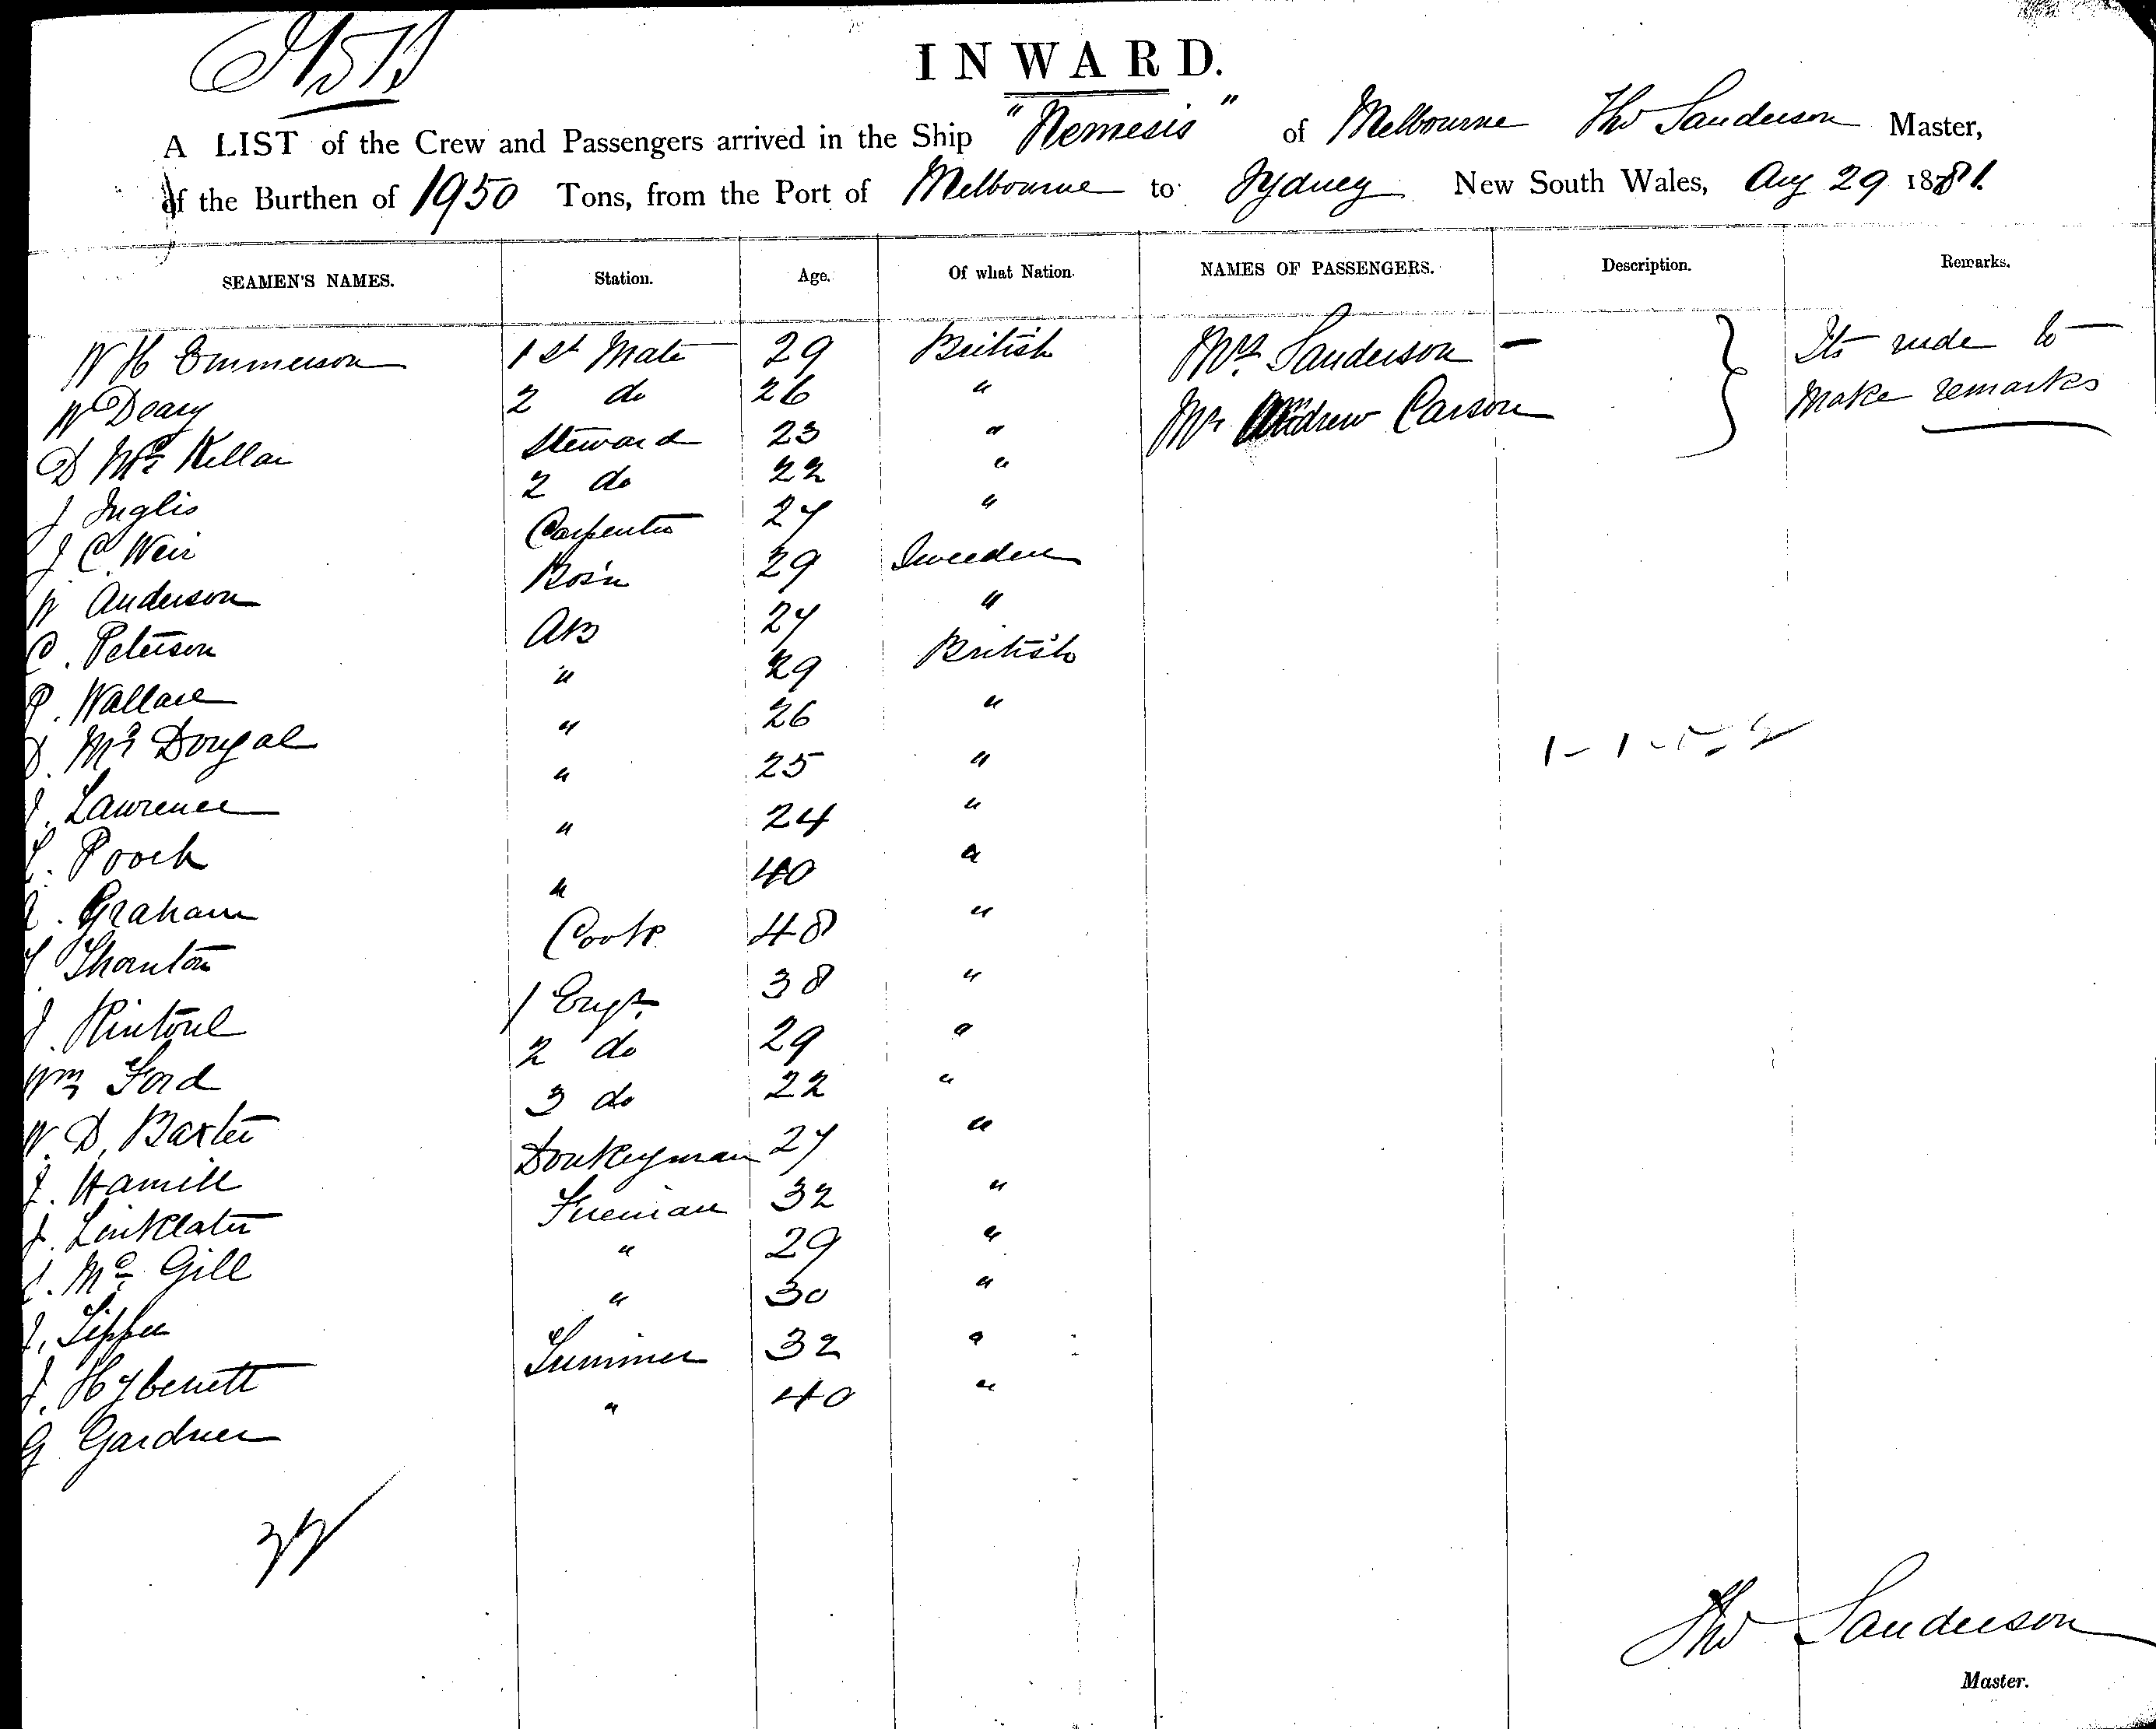 INWARD.
A LIST of the Crew and Passengers arrived in the Ship "Nemesis" of Melbourne Thos Sanderson Master,
of the Burthen of 1950 Tons, from the Port of Melbourne to Sydney New South Wales, Aug 29 1881.
SEAMEN'S NAMES. Station. Age. Of what Nation. NAMES OF PASSENGERS. Description. Remarks.
W H Emmerson 1st Mate 29 British Mrs. Sanderson — Its rude to
W Deary 2 do 26 " Mr Andrew Carson make remarks
D Mc Kellar Steward 23 "
J Inglis 2 do 22 "
J C. Weir Carpenter 27 "
W Anderson Bos'n 29 Sweeden
C. Peterson AB 27 "
P. Wallace " 29 British
D. Mc Dougal " 26 "
J. Lawrence " 25 "
Pooch " 24 "
Graham " 40 "
Thornton Cook 48 "
J. Rintoul 1 Engr. 38 "
Wm Ford 2 do 29 "
W. D. Baxter 3 do 22 "
J. Hamill Donkeyman 27 "
J. Linklater Fireman 32 "
J. Mc Gill " 29 "
J. Tipper " 30 "
J. Hybenett Trimmer 32 "
G Gardner " 40 "
Thos Sanderson
Master.